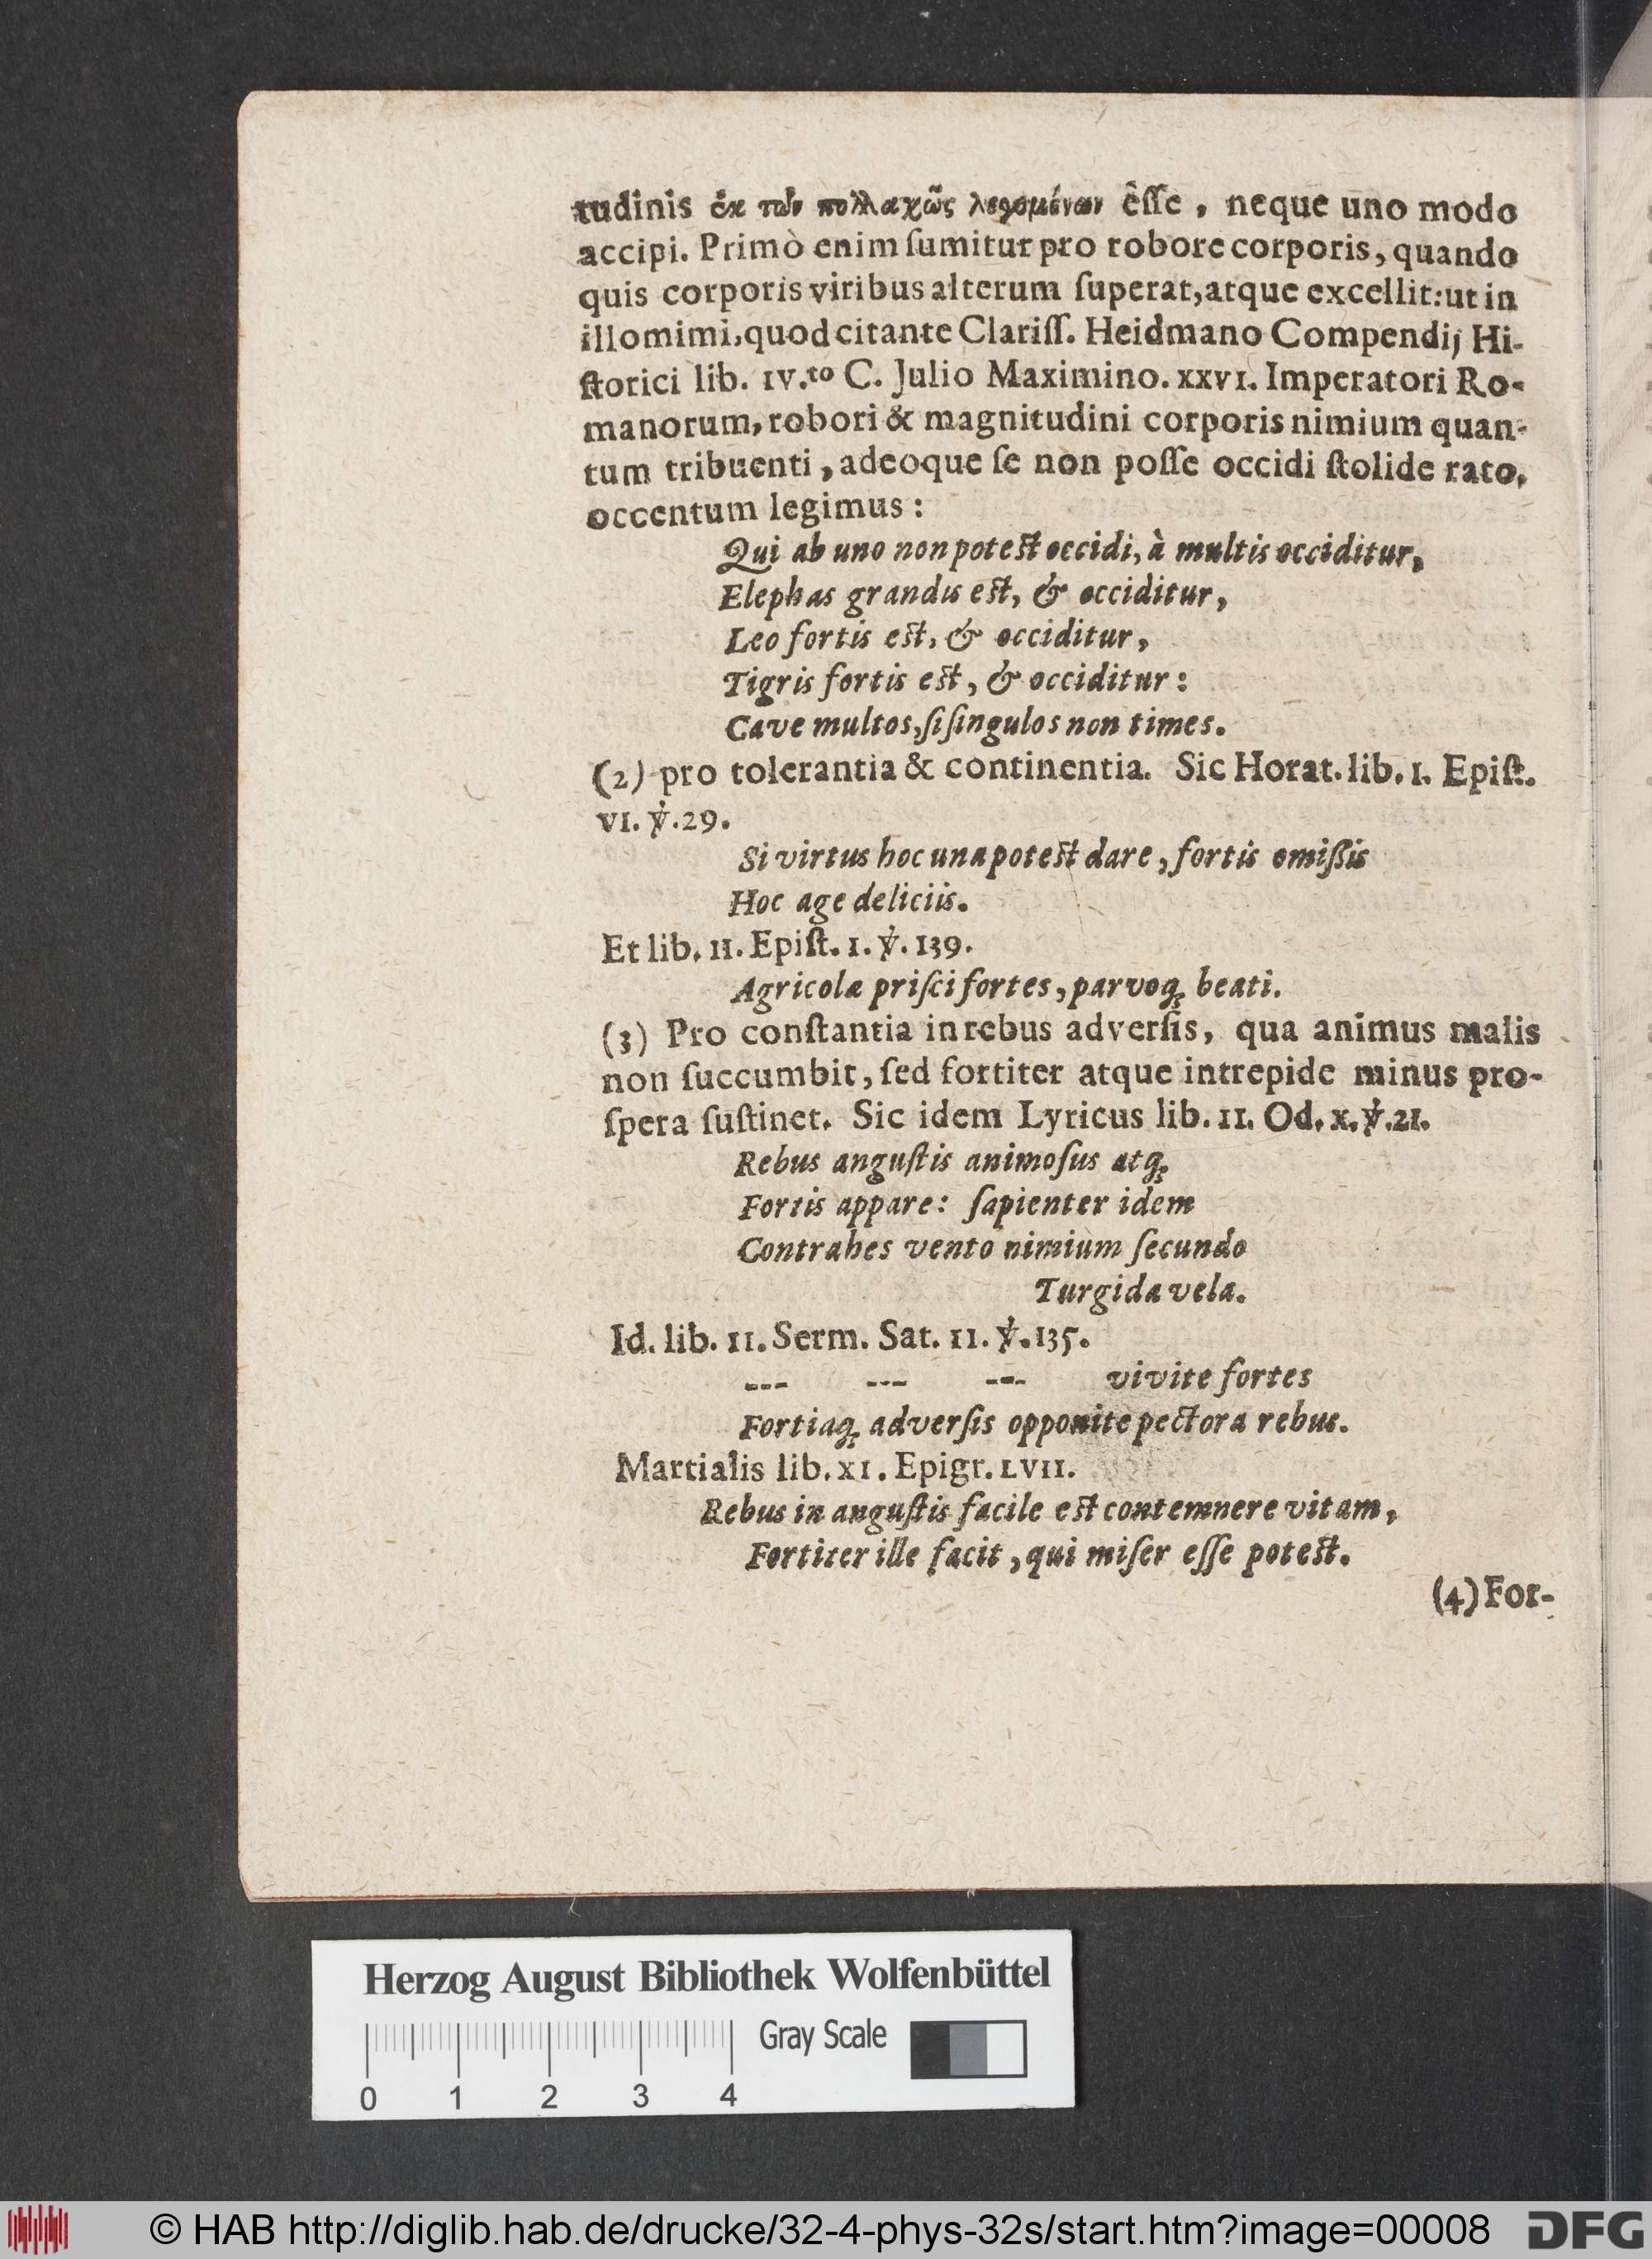 tudinis ἐκ τῶν πολλαχῶς λεγομένων èſſe, neque uno modo
accipi. Primò enim ſumitur pro robore corporis, quando
quis corporis viribus alterum ſuperat, atque excellit: ut in
illo mimi, quod citante Clariſſ. Heidmano Compendij Hi-
ſtorici lib. IV.to C. Julio Maximino. XXVI. Imperatori Ro-
manorum, robori & magnitudini corporis nimium quan-
tum tribuenti, adeoque ſe non poſſe occidi ſtolide rato,
occentum legimus:
Qui ab uno non poteſt occidi, à multis occiditur,
Elephas grandis eſt, & occiditur,
Leo fortis eſt, & occiditur,
Tigris fortis eſt, & occiditur:
Cave multos, ſi ſingulos non times.
(2) pro tolerantia & continentia. Sic Horat. lib. I. Epiſt.
VI. ℣. 29.
Si virtus hoc una poteſt dare, fortis omiſſis
Hoc age deliciis.
Et lib. II. Epiſt. I. ℣. 139.
Agricolæ priſci fortes, parvoq; beati.
(3) Pro conſtantia in rebus adverſis, qua animus malis
non ſuccumbit, ſed fortiter atque intrepide minus pro-
ſpera ſuſtinet. Sic idem Lyricus lib. II. Od. X. ℣. 21.
Rebus anguſtis animoſus atq;
Fortis appare: ſapienter idem
Contrahes vento nimium ſecundo
Turgida vela.
Id. lib. II. Serm. Sat. II. ℣. 135.
--- --- --- vivite fortes
Fortiaq; adverſis opponite pectora rebus.
Martialis lib. XI. Epigr. LVII.
Rebus in anguſtis facile eſt contemnere vitam,
Fortiter ille facit, qui miſer eſſe poteſt.
(4) For-
Herzog August Bibliothek Wolfenbüttel
Gray Scale
0 1 2 3 4
© HAB http://diglib.hab.de/drucke/32-4-phys-32s/start.htm?image=00008
DFG